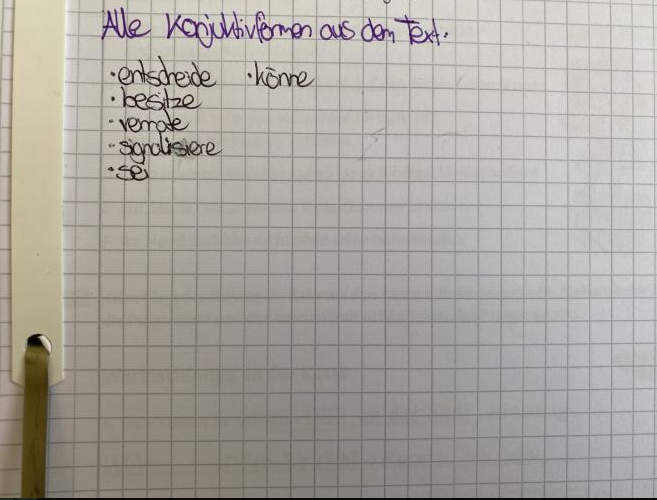 Alle Konjuktivformen aus dem Text.
· entscheide · könne
· besitze
· verrate
· signalisiere
· sei